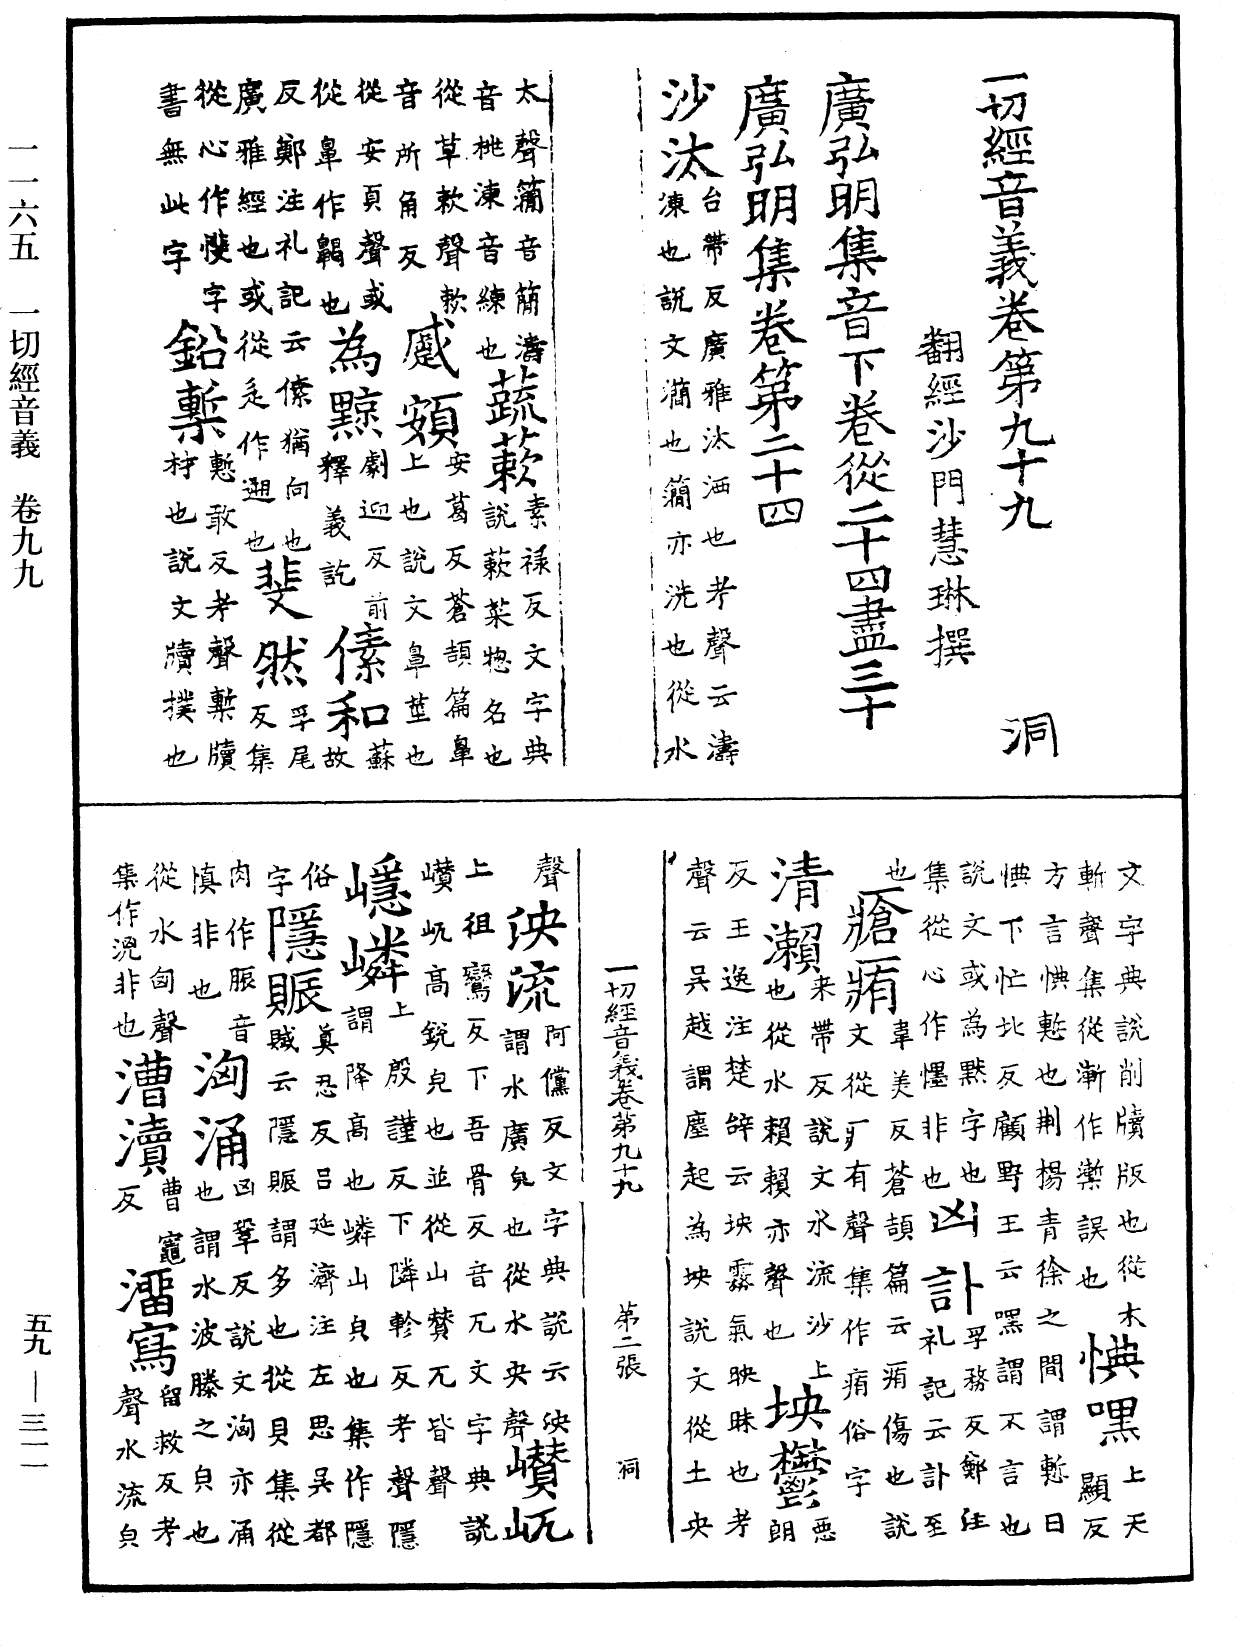 一切經音義卷第九十九　洞
翻經沙門慧琳撰
廣弘明集音下卷從二十四盡三十
廣弘明集卷第二十四
沙汰台帶反廣雅汰洒也考聲云濤
湅也說文瀾也簡亦洗也從水
太聲籣音簡濤
音桃湅音練也蔬蔌素祿反文字典
說蔌菜惣名也
從草欶聲欶
音所角反蹙頞安葛反蒼頡篇鼻
上也說文鼻莖也
從安頁聲或
從鼻作齃也為黥劇迎反前
釋義訖傃和蘇故
反鄭注礼記云傃猶向也
廣雅經也或從辵作遡也斐然孚尾反集
從心作悽字
書無此字鉛槧慙敢反考聲槧牘
材也說文牘撲也
文字典說削牘版也從木
斬聲集從漸作槧誤也惵嘿上天顯反
方言惵慙也荊揚青徐之間謂慙曰
惵下忙北反顧野王云嘿謂不言也
說文或為默字也
集從心作㦄非也凶訃孚務反鄭注
礼記云訃至
也瘡痏韋美反蒼頡篇云痏傷也說
文從疒有聲集作痏俗字
清瀨來帶反說文水流沙上
也從水賴賴亦聲也坱鬱上惡朗
反王逸注楚辞云坱霧氣昳昧也考
聲云吳越謂塵起為坱說文從土央
一切經音義卷第九十九　第二張　洞
聲泱流阿儻反文字典說云泱
謂水廣皃也從水央聲巑屼
上祖鸞反下吾骨反音兀文字典說
巑屼高銳皃也並從山贊兀皆聲
嶾嶙上殷謹反下隣軫反考聲隱
謂降高也嶙山皃也集作隱
俗字隱賑真忍反呂延濟注左思吳都
賦云隱賑謂多也從貝集從
肉作脤音
慎非也洶涌凶鞏反說文洶亦涌
也謂水波騰之皃也
從水匈聲
集作㴧非也漕瀆曹竈反溜寫留救反考
聲水流皃
一一六五　一切經音義　卷九九　五九—三一一